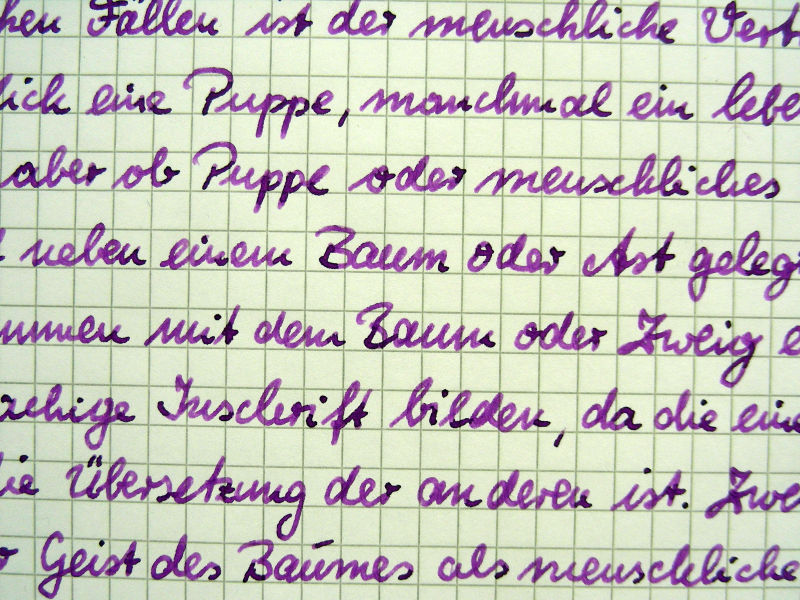 hen Fällen ist der menschliche Vert
lich eine Puppe, manchmal ein lebe
aber ob Puppe oder menschliches
neben einem Baum oder Ast geleg
mmen mit dem Baum oder Zweig e
achige Inschrift bilden, da die eine
die Übersetzung der anderen ist. Zwe
r Geist des Baumes als menschliche